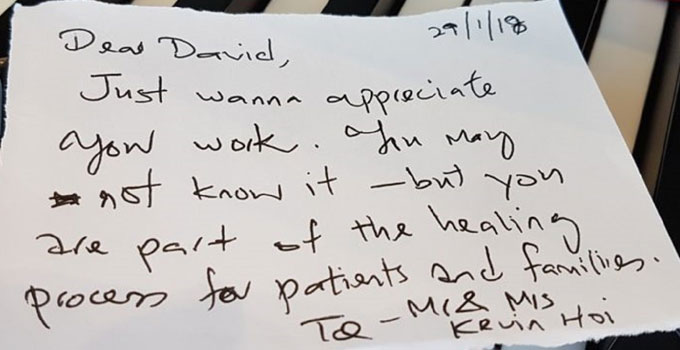 29/1/18
Dear David,
Just wanna appreciate
your work. You may
not know it - but you
are part of the healing
process for patients and families.
TQ - Mr & Mrs
Kevin Hoi